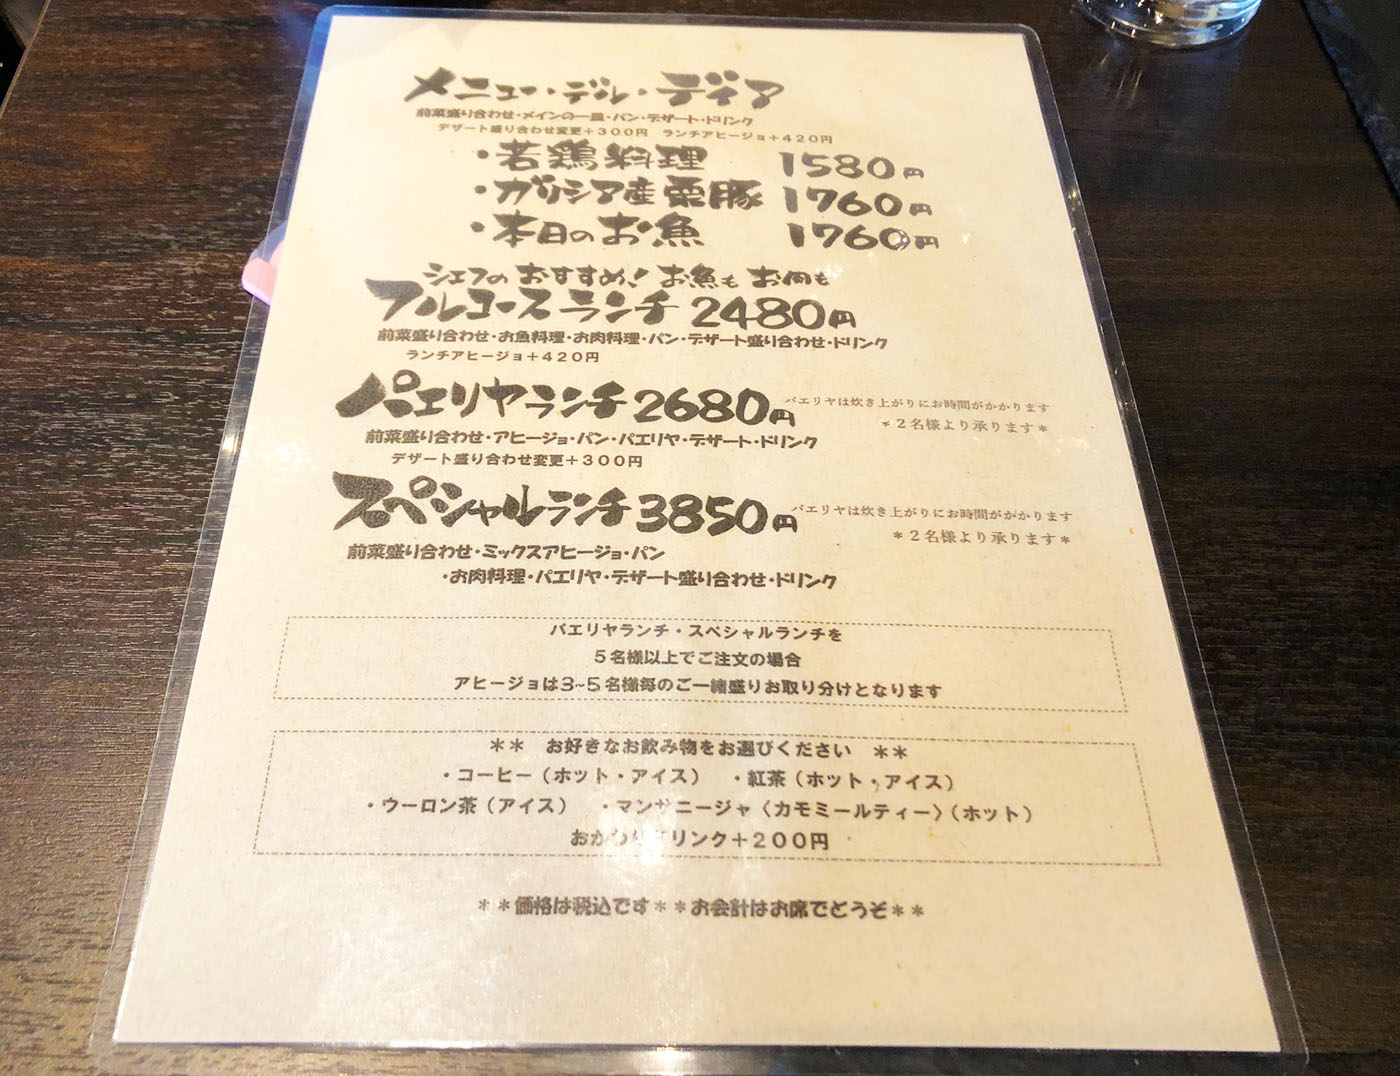 メニュー・デル・ディア
前菜盛り合わせ・メインの一皿・パン・デザート・ドリンク
デザート盛り合わせ変更+300円 ランチアヒージョ+420円
・若鶏料理 1580円
・ガリシア産栗豚 1760円
・本日のお魚 1760円
シェフのおすすめ! お魚も お肉も
フルコースランチ 2480円
前菜盛り合わせ・お魚料理・お肉料理・パン・デザート盛り合わせ・ドリンク
ランチアヒージョ+420円
パエリヤランチ 2680円 パエリヤは炊き上がりにお時間がかかります
*2名様より承ります*
前菜盛り合わせ・アヒージョ・パン・パエリヤ・デザート・ドリンク
デザート盛り合わせ変更+300円
スペシャルランチ 3850円 パエリヤは炊き上がりにお時間がかかります
*2名様より承ります*
前菜盛り合わせ・ミックスアヒージョ・パン
・お肉料理・パエリヤ・デザート盛り合わせ・ドリンク
パエリヤランチ・スペシャルランチを
5名様以上でご注文の場合
アヒージョは3~5名様毎のご一緒盛りお取り分けとなります
** お好きなお飲み物をお選びください **
・コーヒー(ホット・アイス) ・紅茶(ホット・アイス)
・ウーロン茶(アイス) ・マンサニージャ〈カモミールティー〉(ホット)
おかわりドリンク+200円
**価格は税込です**お会計はお席でどうぞ**